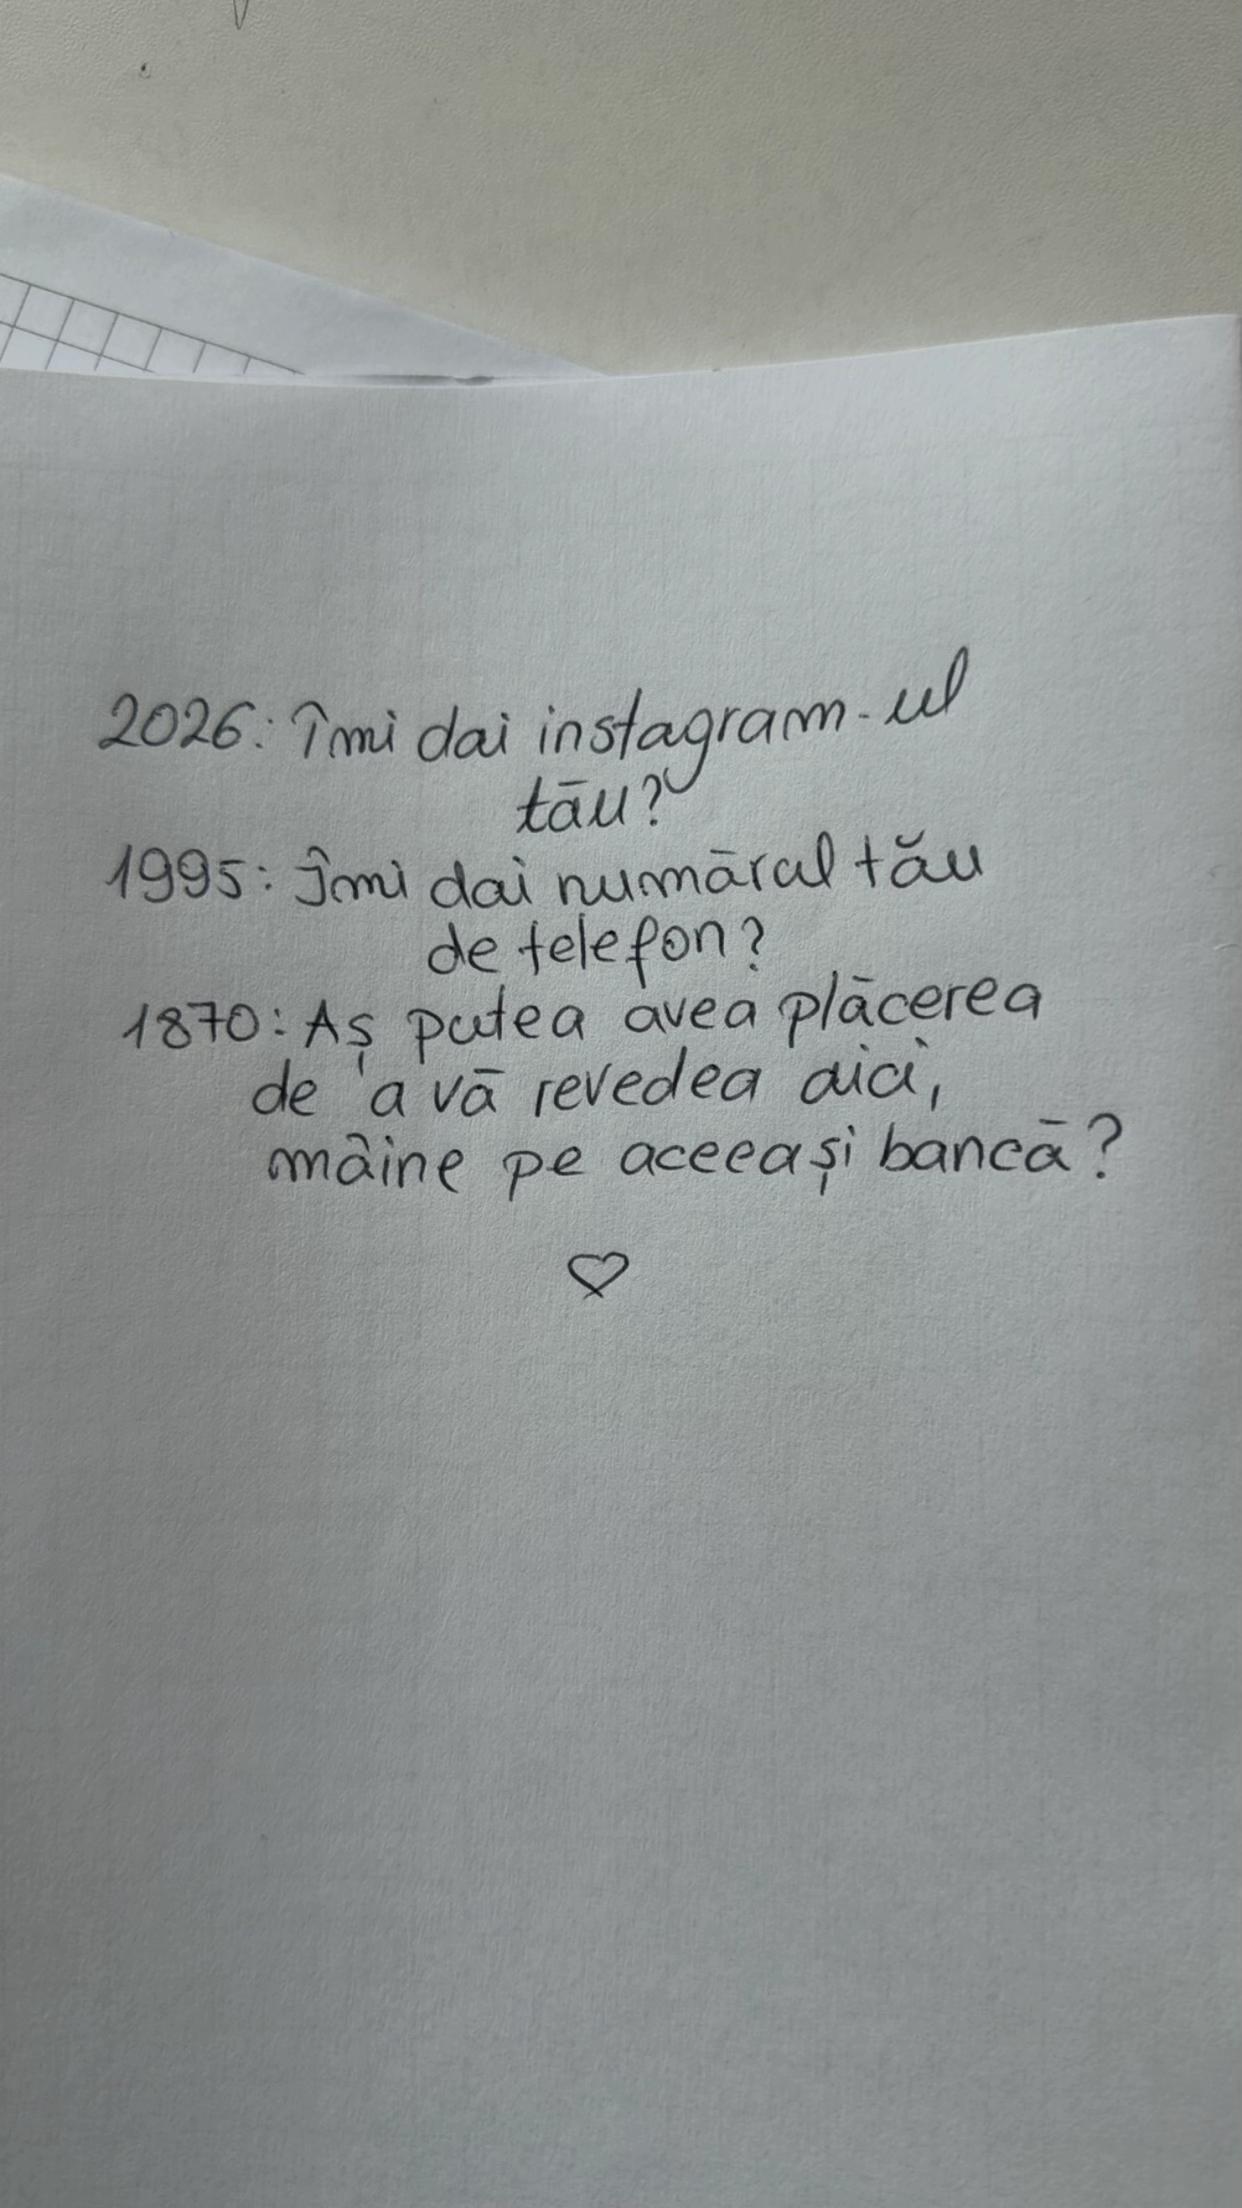 2026: Îmi dai instagram-ul
tău?
1995: Îmi dai numărul tău
de telefon?
1870: Aș putea avea plăcerea
de a vă revedea aici,
mâine pe aceeași bancă?